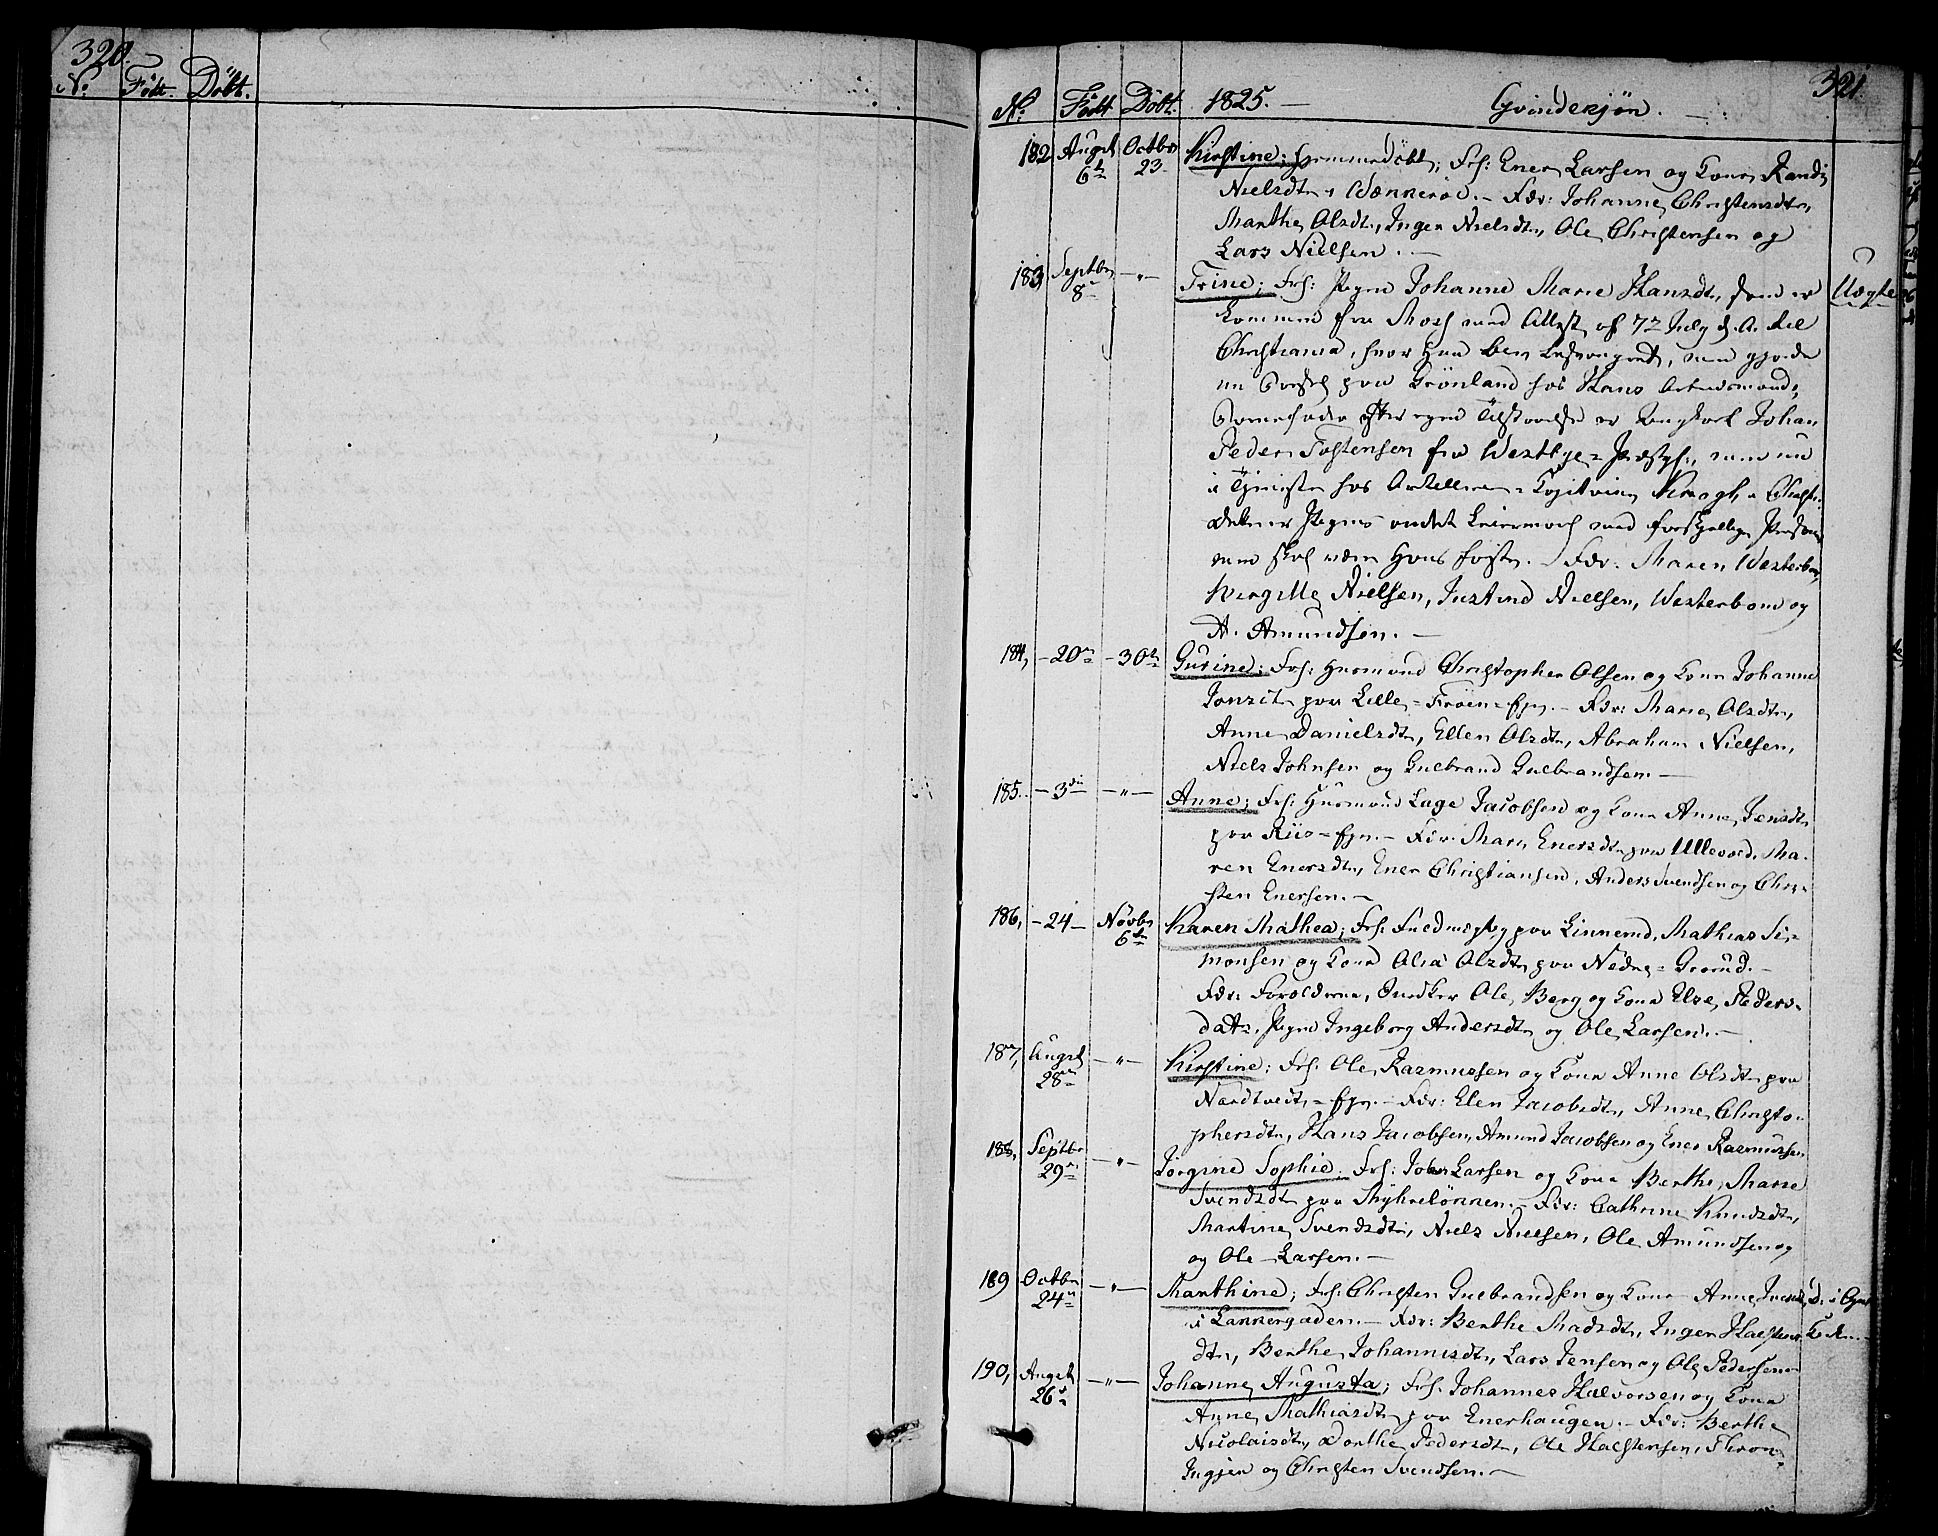 320.
No. Födt. Döbt.
321
No. Födt Döbt. 1825. — Qvindekjön.
182 Augst 6te Octbr 23. Kirstine; hjemmedöbt; Frf: Ener Larsen og Kone Randi
Nielsdtr i Wænnerød. – Fdr: Johanne Christensdtr,
Marthe Olsdtr, Inger Nielsdtr, Ole Christensen og
Lars Nielsen. —
183, Septbr 8de – " – Trine; Frf: Pigen Johanne Marie Hansdtr, som er Uægte
kommen fra Moss med Attest af 7 July d. A. til
Christiania, hvor hun blev besvangret, men gjorde
sin Barsel paa Grönland hos Hans Arbeidsmand;
Barnefader efter egen Tilstaaelse er Ungkarl Johan
Peder Tostensen fra Westbye = Præstgj:, men nu
i Tjeneste hos Artillerie = Capitain Krogh i Christ:
Dette er Pigens andet Leiermaal med forskjellige Personer
men skal være hans første. – Fdr: Maren Westerbom,
Birgitte Nielsen, Justine Nielsen, Westerbom og
A. Amundsen. —
184, – 20de – 30te Gurine; Frf: Huusmand Christopher Olsen og Kone Johanne
Jonsdtr paa Lille = Fröen = Eje. – Fdr: Marie Olsdtr,
Anne Danielsdtr, Ellen Olsdtr, Abraham Nielsen,
Niels Johnsen og Gulbrand Gulbrandsen. —
185. – 3die – " – Anne; Frf: Huusmand Lage Jacobsen og Kone Anne Jensdtr
paa Riis = Ejer. – Fdr: Mari Enersdtr paa Ullevold, Ma-
ren Enersdtr, Ener Christiansen, Anders Svendsen og Chri-
sten Enersen. —
186, – 24 – Novbr 6te Karen Mathea; Frf: paa Linnerud, Mathias Si-
monsen og Kone Olia Olsdtr paa Nedre = Grorud. –
Fdr: Forældrene, Ole Berg og Kone Else Peders-
datr, Pigen Ingeborg Andersdtr og Ole Larsen. —
187, Augst 28de – " – Kirstine; Frf: Ole Rasmussen og Kone Anne Olsdtr paa
Nordtvedt = Eje. – Fdr: Elen Jacobsdtr, Anne Christo-
phersdtr, Hans Jacobsen, Amund Jacobsen og Ener Rasmussen
188, Septbr 29de – " – Jörgine Sophie; Frf: John Larsen og Kone Berthe Marie
Svendsdtr paa Myhrelönnen. – Fdr: Cathrine Knudsdtr,
Martine Svendsdtr, Niels Nielsen, Ole Amundsen og
og Ole Larsen. —
189 Octbr 24de – " – Marthine; Frf: Christen Gulbrandsen og Kone Anne
i Lakkergaden. – Fdr: Berthe Madsdtr, Inger Halstens-
dtr, Berthe Johannisdtr, Lars Jensen og Ole Pedersen
190, Augst 26de – " – Johanne Augusta; Frf: Johannes Halvorsen og Kone
Anne Mathiasdtr paa Enerhaugen. – Fdr: Berthe
Nicolaisdtr, Dorthe Pedersdtr, Ole Halstensen, Thron
Ingjer og Christen Svendsen. —